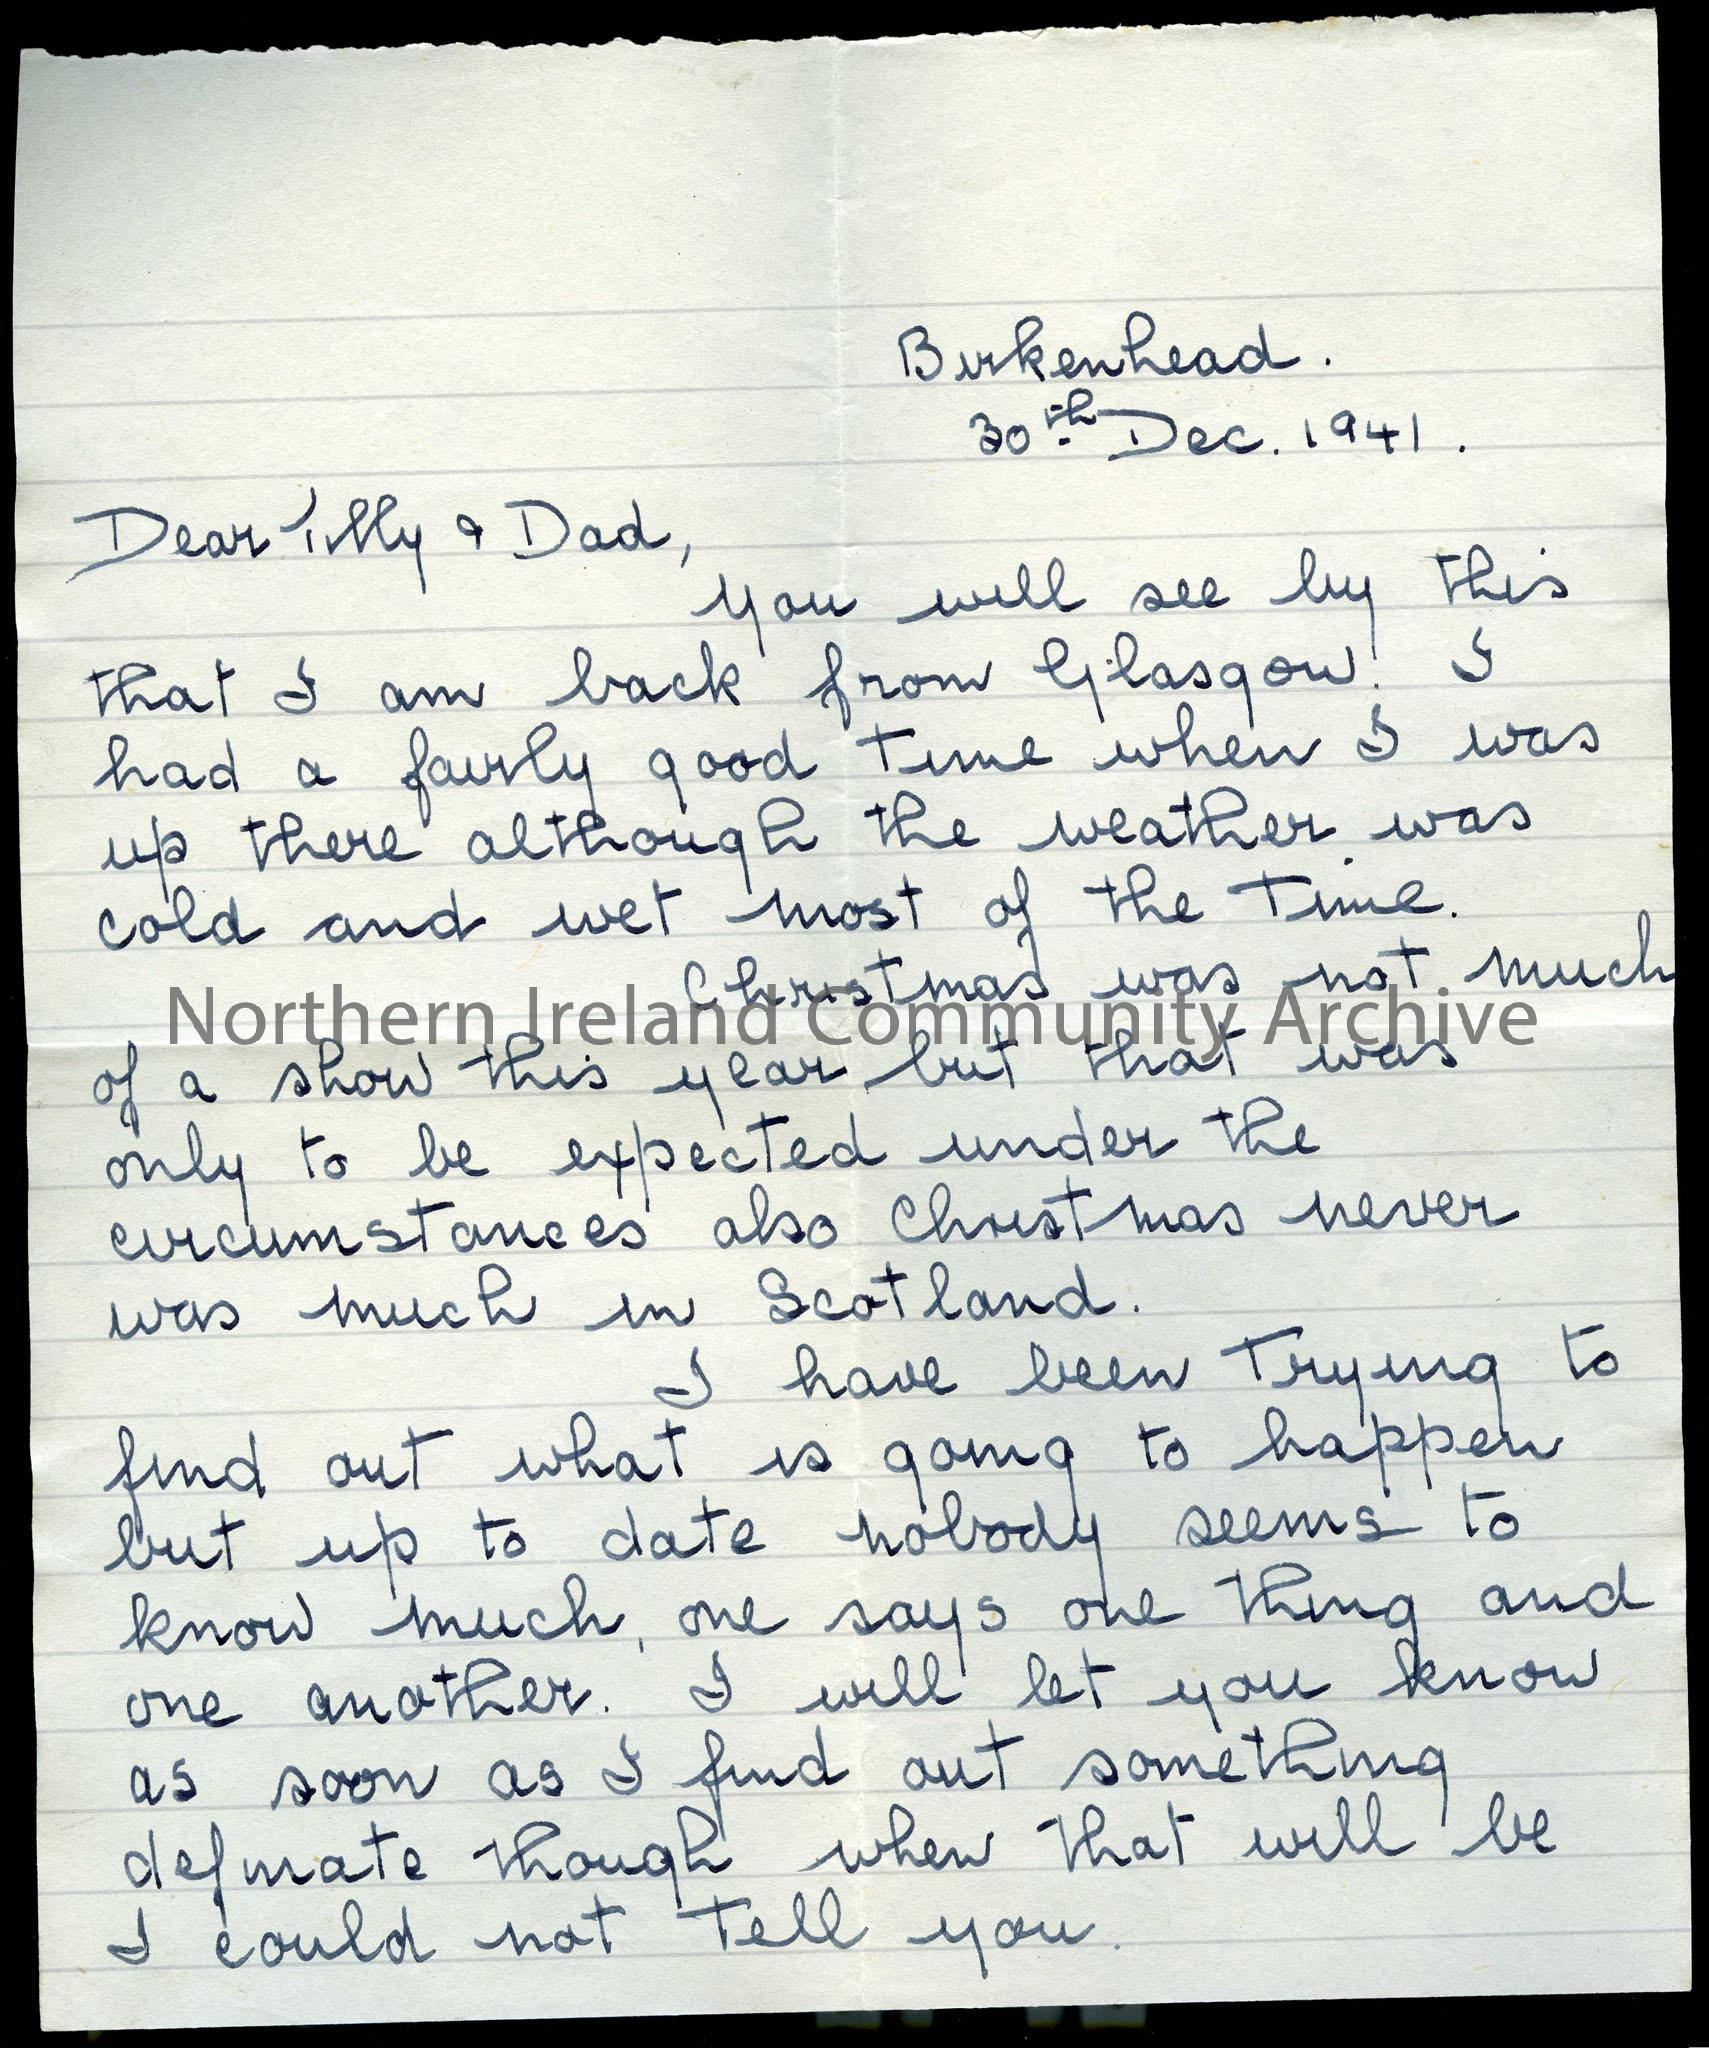 Birkenhead.
30th Dec. 1941.
Dear Tilly & Dad,
You will see by this
that I am back from Glasgow. I
had a fairly good time when I was
up there although the weather was
cold and wet most of the time.
Christmas was not much
Northern Ireland Community Archive
of a show this year but that was
only to be expected under the
circumstances also Christmas never
was much in Scotland.
I have been trying to
find out what is going to happen
but up to date nobody seems to
know much, one says one thing and
one another. I will let you know
as soon as I find out something
definate though when that will be
I could not tell you.